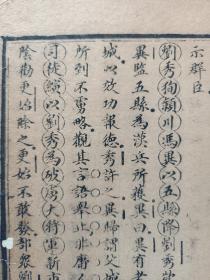 示群臣
劉秀狥潁川馮異以五縣降劉秀
異監五縣為漢兵所獲異曰異有老
城以效功報德秀許之異歸謂父城
所到不虜略觀其言語舉止非庸
司徒縯以劉秀為破虜大將軍新
陰勸更始除之更始不敢發部衆劉